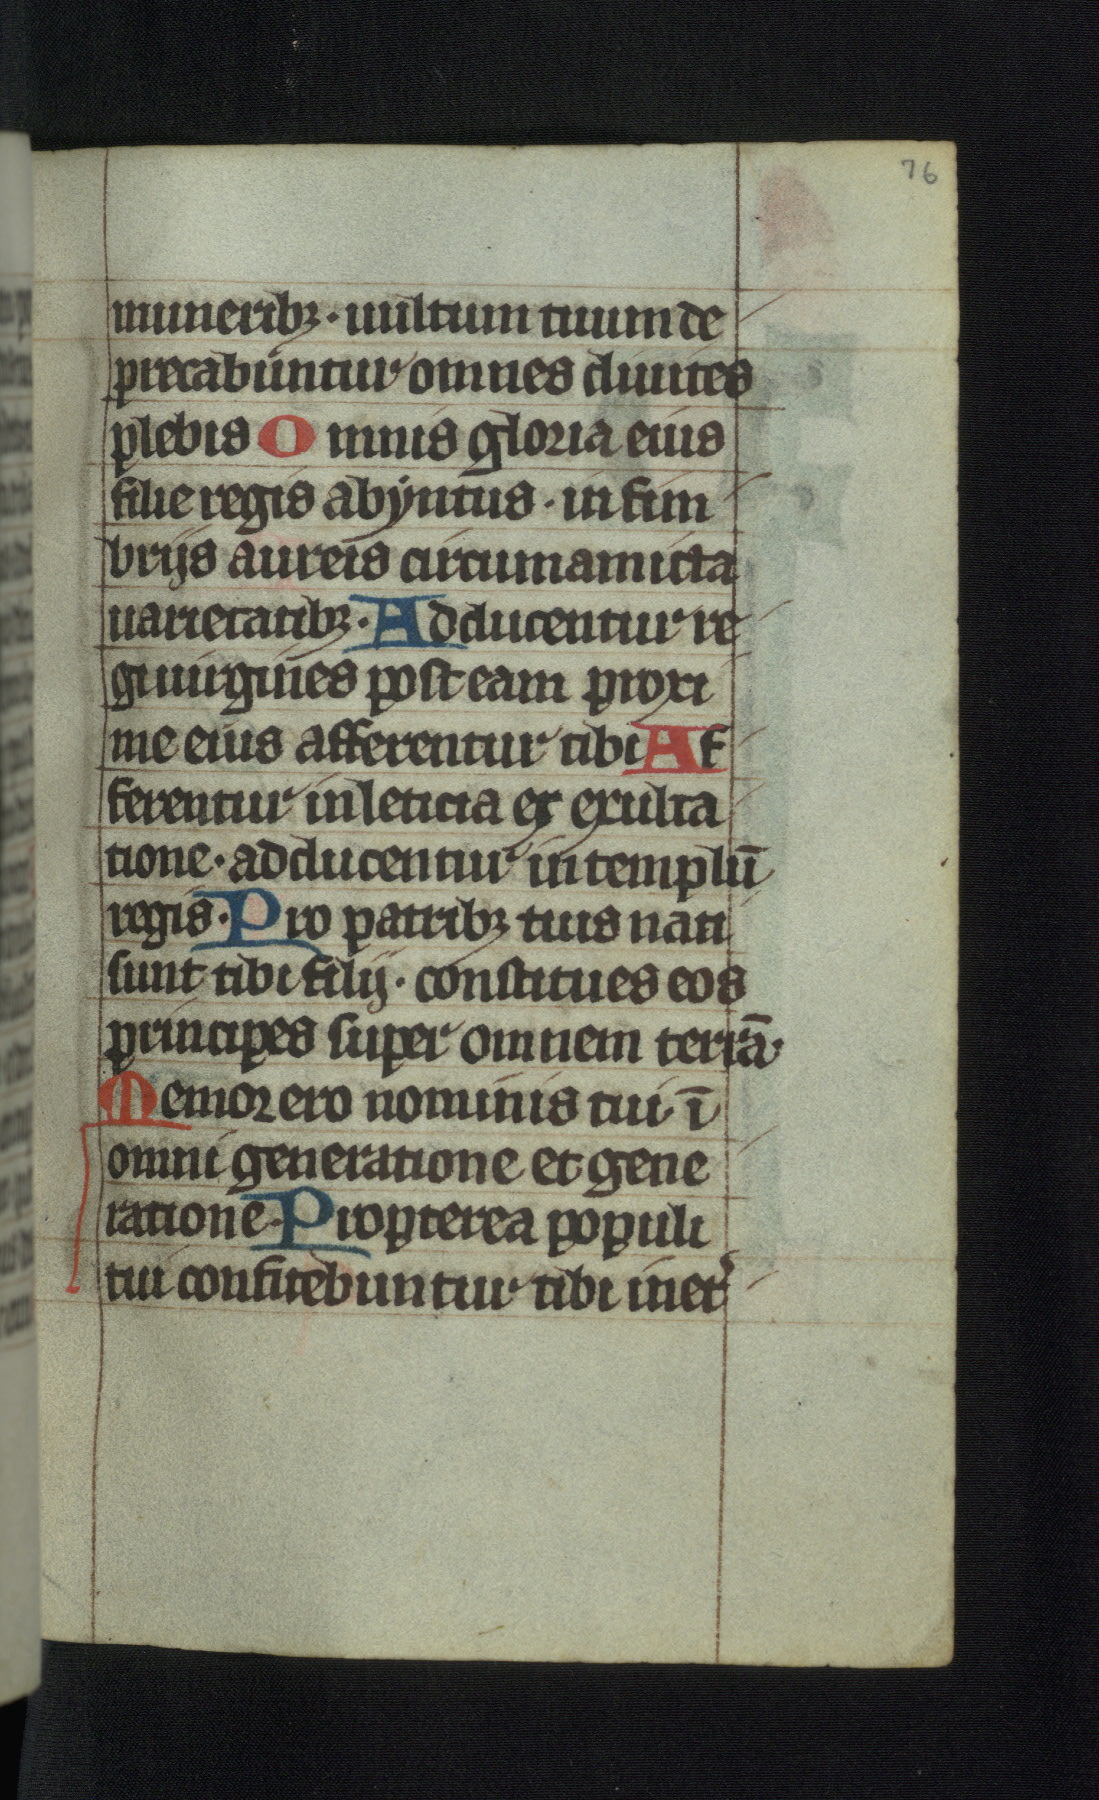 76
muneribꝫ · uultum tuum de
precabuntur omnes diuites
plebis Omnis gloria eius
filie regis abyntus · in fim
brijs aureis circumamicta
uarietatibꝫ · Adducentur re
gi uirgines post eam proxi
me eius afferentur tibi Af
ferentur in leticia et exulta
tione · adducentur in templū
regis · Pro patribꝫ tuis nati
sunt tibi filij · constitues eos
principes super omnem terrā ·
Memor ero nominis tui · ī
omni generatione et gene
ratione · Propterea populi
tui confitebuntur tibi inet᷑